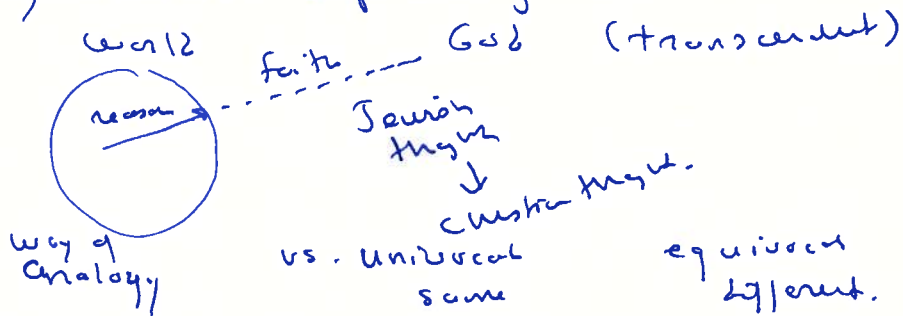 World
God (transcendent)
faith
reason
Jewish
thought
Christian thought.
Way of
analogy
vs. univocal
same
equivocal
different.